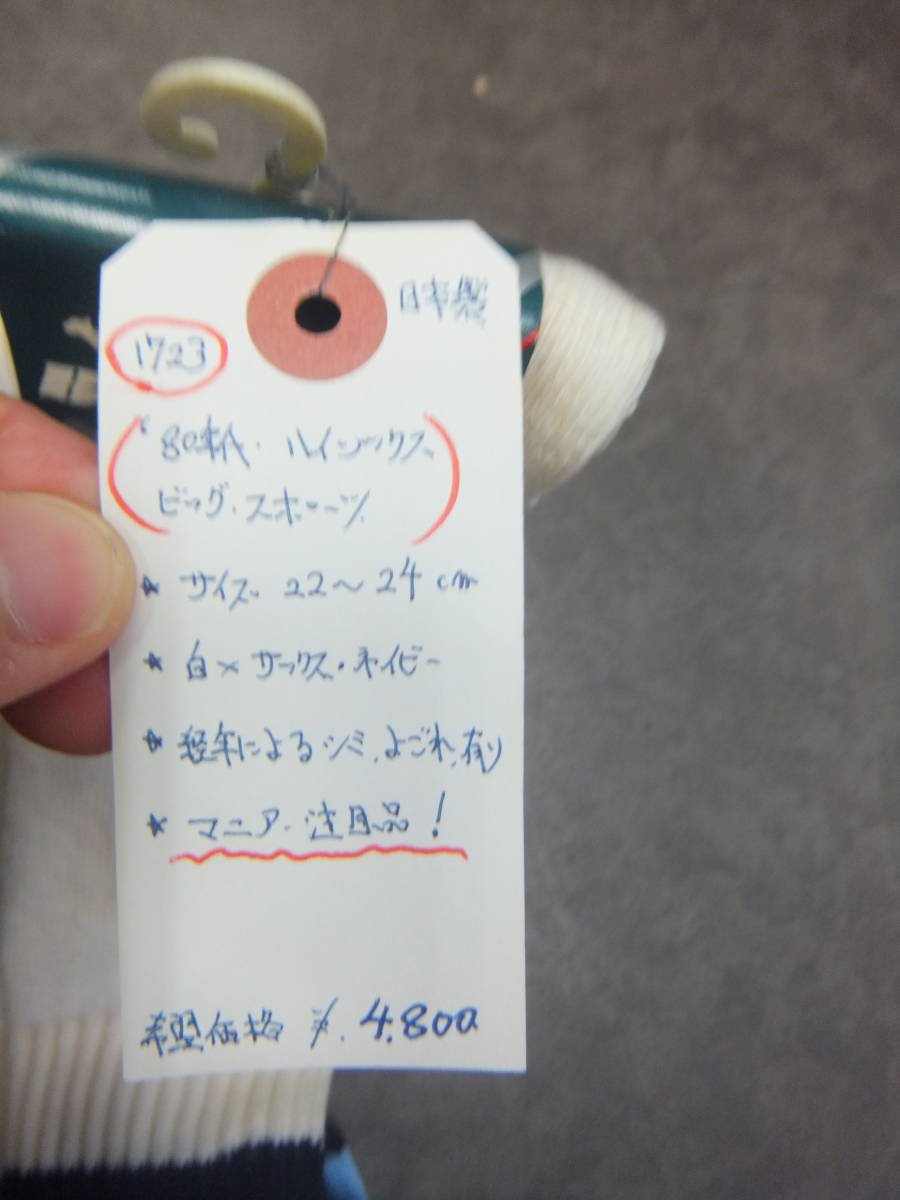 日本製
1723
'80年代.ハイソックス、
ビッグ.スポーツ
★ サイズ. 22〜24cm
★ 白×サックス・ネイビー
★ 経年によるシミ、よごれ、有り
★ マニア.注目品!
希望価格 ¥.4.800